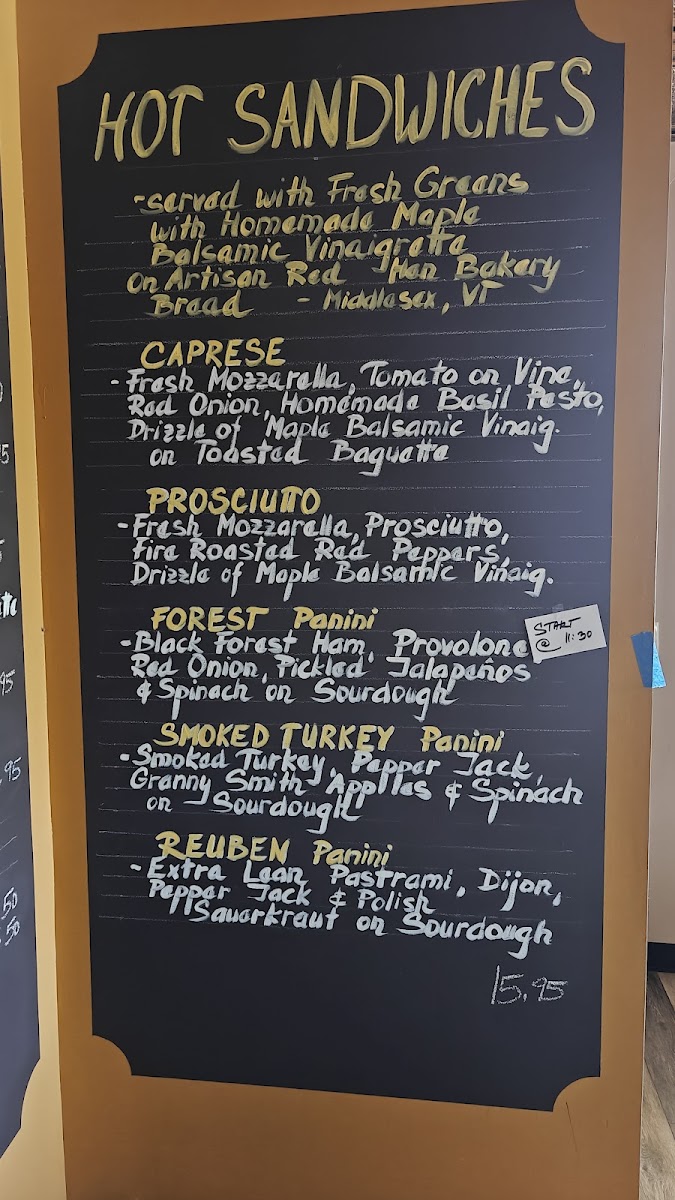 HOT SANDWICHES
-served with Fresh Greens
with Homemade Maple
Balsamic Vinaigrette
on Artisan Red Hen Bakery
Bread - Middlesex, VT
CAPRESE
- Fresh Mozzarella, Tomato on Vine,
Red Onion, Homemade Basil Pesto,
Drizzle of Maple Balsamic Vinaig.
on Toasted Baguette
PROSCIUTTO
- Fresh Mozzarella, Prosciutto,
Fire Roasted Red Peppers,
Drizzle of Maple Balsamic Vinaig.
FOREST Panini
- Black Forest Ham, Provolone
Red Onion, Pickled Jalapeños
& Spinach on Sourdough
START
@ 11:30
SMOKED TURKEY Panini
- Smoked Turkey, Pepper Jack,
Granny Smith Appples & Spinach
on Sourdough
REUBEN Panini
- Extra Lean Pastrami, Dijon,
Pepper Jack & Polish
Sauerkraut on Sourdough
15.95